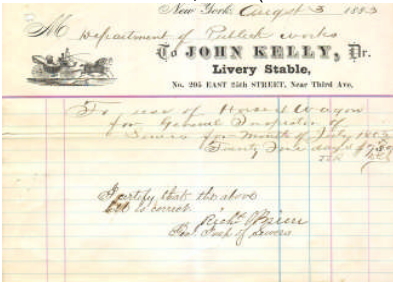 New York, August 3 1883
M Department of Publick Works
To JOHN KELLY, Dr.
Livery Stable,
No. 205 EAST 25th STREET, Near Third Ave,
To use of Horse & Wagon
for General Inspector of
Sewers for Month of July 1883
Twenty days
I certify that the above
bill is correct
Richd O'Brien
Gen Insp of Sewers